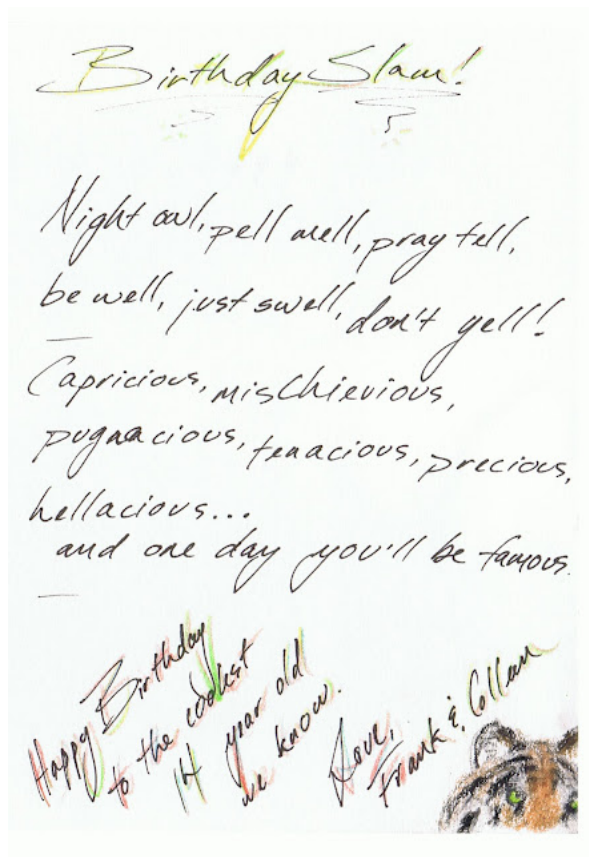 Birthday Slam!
Night owl, pell mell, pray tell,
be well, just swell, don't yell!
Capricious, mischievious,
pugnacious, tenacious, precious,
hellacious...
and one day you'll be famous.
Happy Birthday
to the coolest
14 year old
we know.
Love,
Frank & Collan